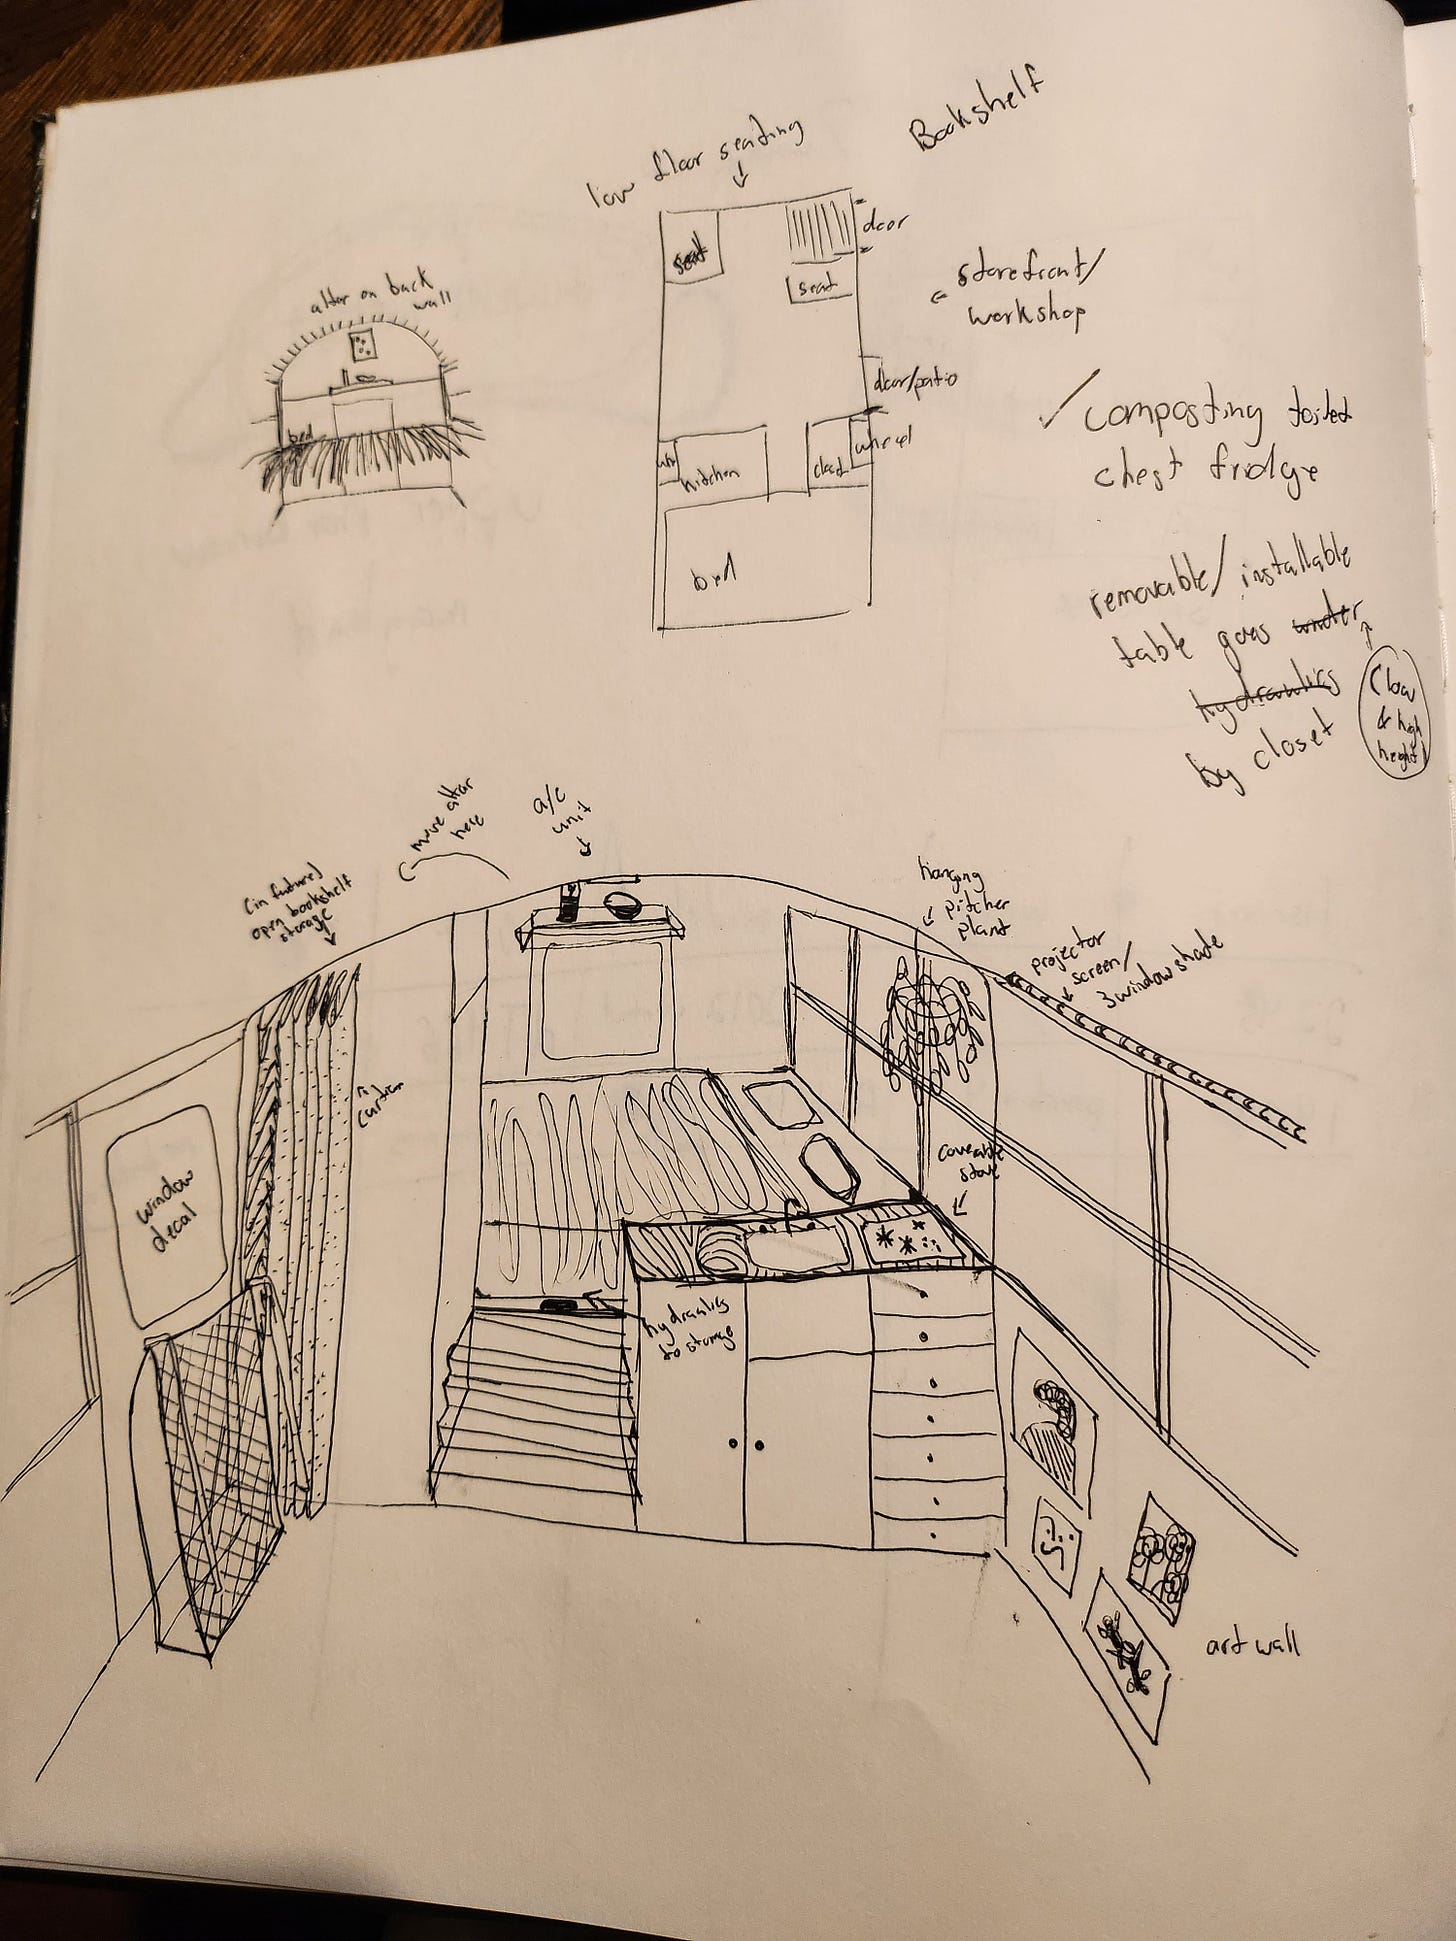 Bookshelf
low floor seating
seat
door
seat
storefront/
workshop
altar on back
wall
bed
door/patio
wheel
kitchen
bed
✓ composting toilet
chest fridge
removable/installable
table goes under
hydraulics
by closet
(low
& high
height)
move altar
here
a/c
unit
(in future)
open bookshelf
storage
hanging
pitcher
plant
projector
screen/
3 window shade
curtain
window
decal
coverable
stove
hydraulics
to storage
art wall